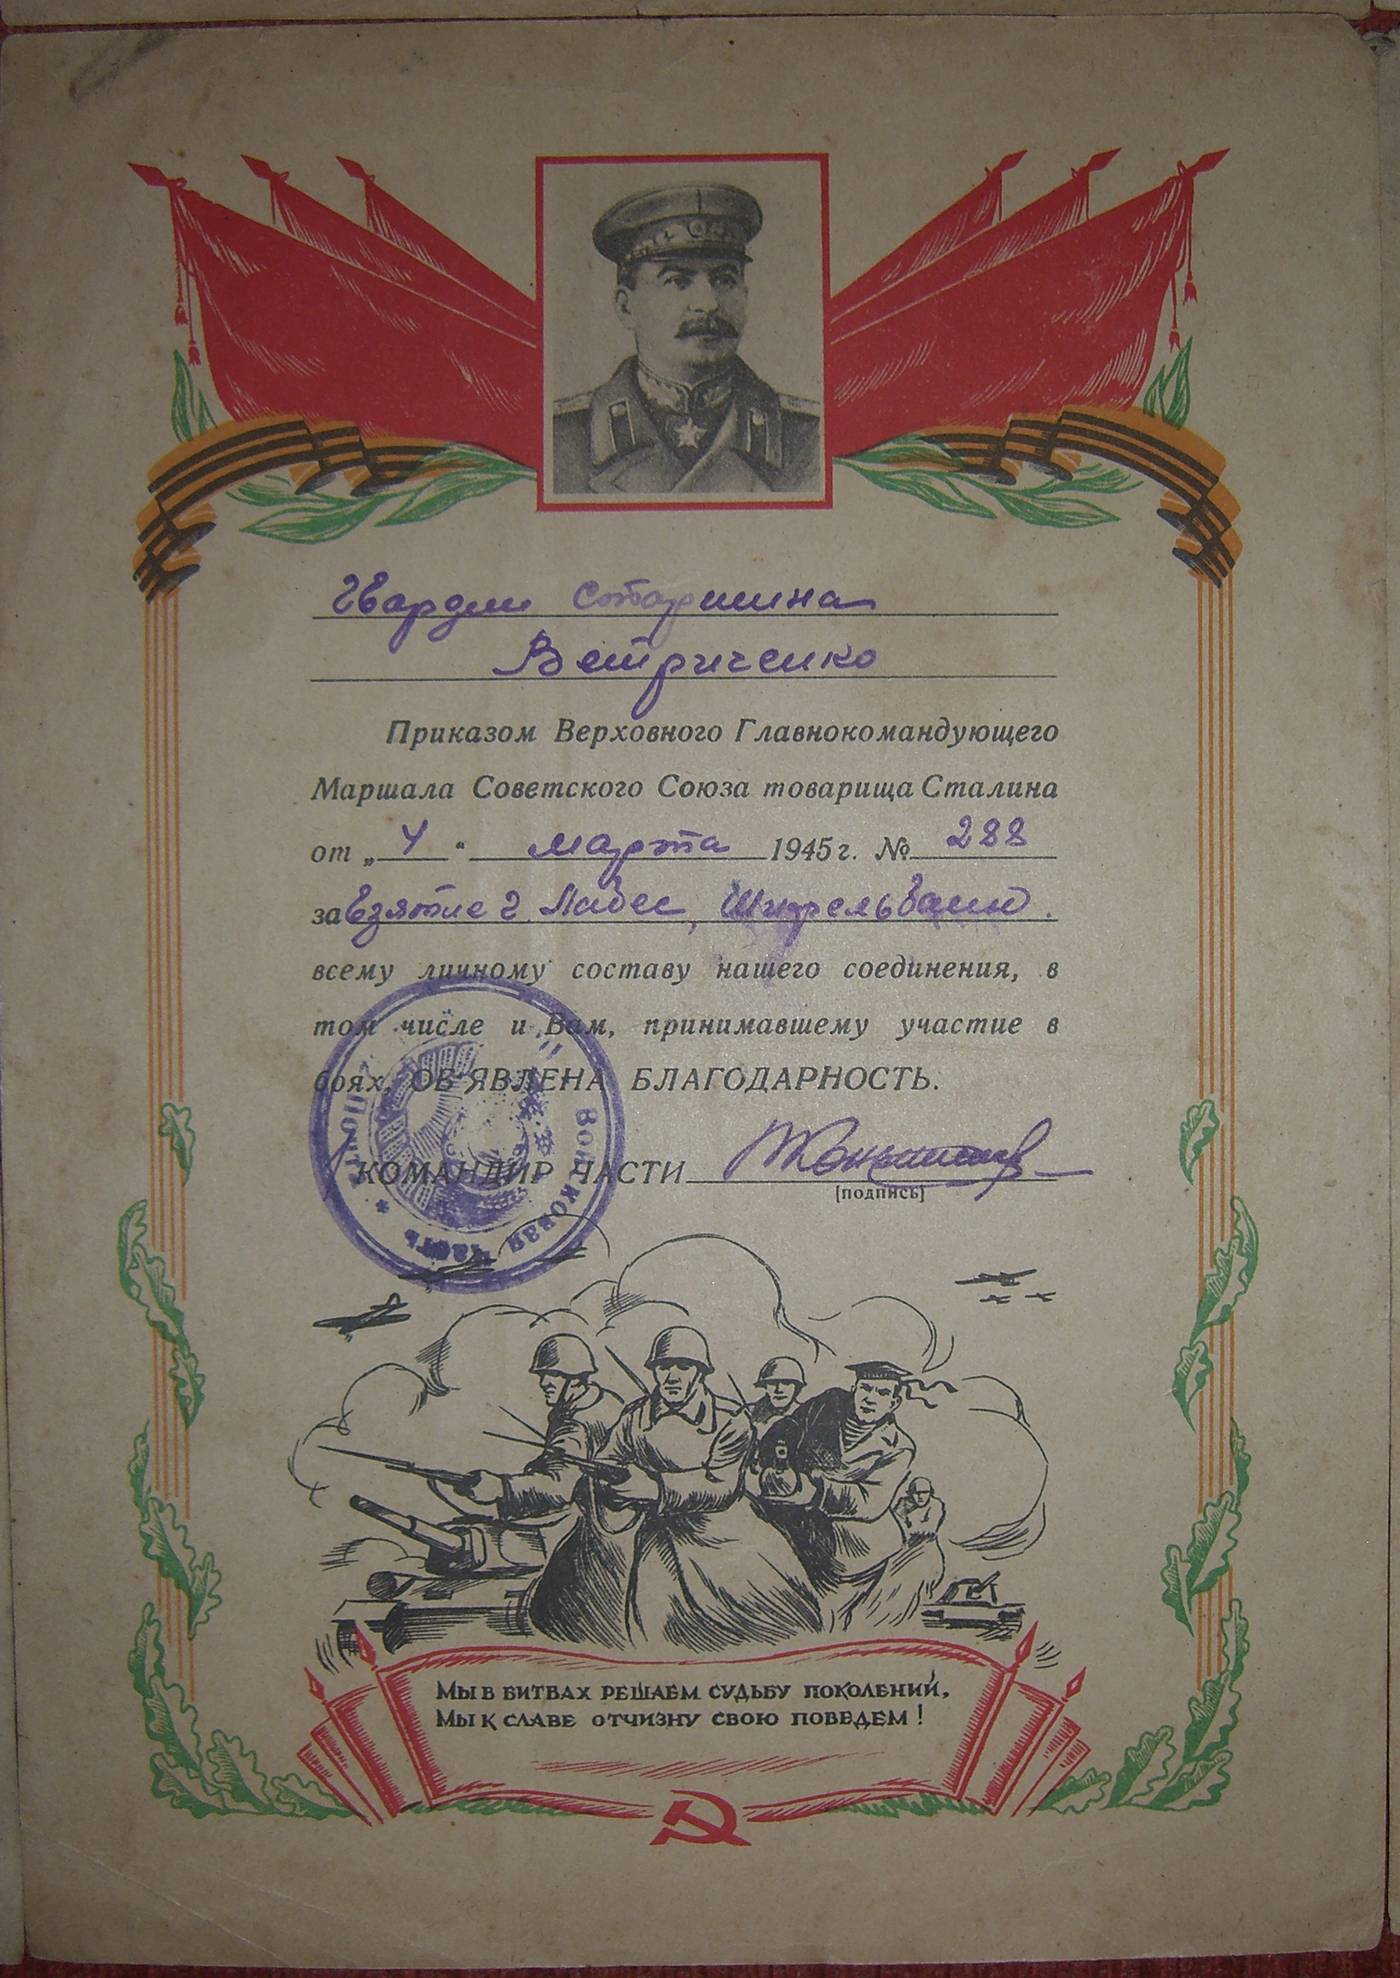 Гвардии старшина
Ветриченко
Приказом Верховного Главнокомандующего
Маршала Советского Союза товарища Сталина
от „4“ марта 1945 г. № 288
за взятие г. Лабес,
всему личному составу нашего соединения, в
том числе и Вам, принимавшему участие в
боях, ОБ'ЯВЛЕНА БЛАГОДАРНОСТЬ.
КОМАНДИР ЧАСТИ
(подпись)
Войсковая часть
МЫ В БИТВАХ РЕШАЕМ СУДЬБУ ПОКОЛЕНИЙ,
МЫ К СЛАВЕ ОТЧИЗНУ СВОЮ ПОВЕДЕМ!